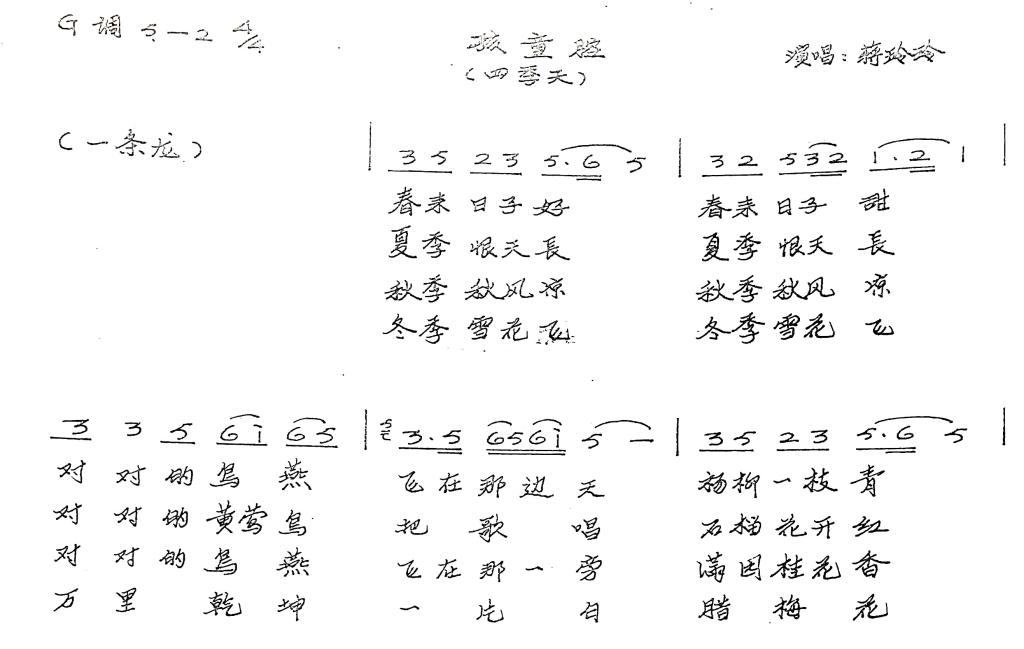 G调 5—2 4/4
孩童腔
(四季天)
演唱：蒋玲玲
(一条龙)
| 3 5 2 3 5·6 5 | 3 2 5 3 2 1·2 1 |
春来 日子 好 春来 日子 甜
夏季 恨天 長 夏季 恨天 長
秋季 秋风 凉 秋季 秋风 凉
冬季 雪花 飞 冬季 雪花 飞
3 3 5 6 i 6 5 | 3·5 6 5 6 i 5 — | 3 5 2 3 5·6 5 |
对 对 的 鸟 燕 飞在 那边 天 杨柳 一枝 青
对 对 的 黄莺 鸟 把 歌 唱 石榴 花开 红
对 对 的 鸟 燕 飞在 那一 旁 满园 桂花 香
万 里 乾 坤 一 片 白 腊 梅 花